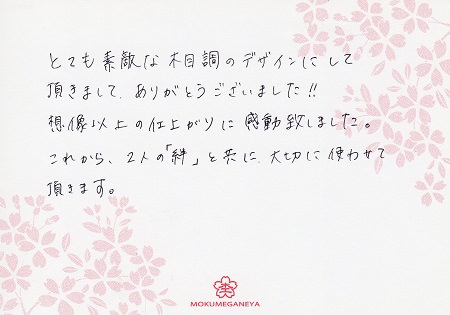 とても素敵な木目調のデザインにして
頂きまして、ありがとうございました!!
想像以上の仕上がりに感動致しました。
これから、2人の「絆」と共に、大切に使わせて
頂きます。
MOKUMEGANEYA